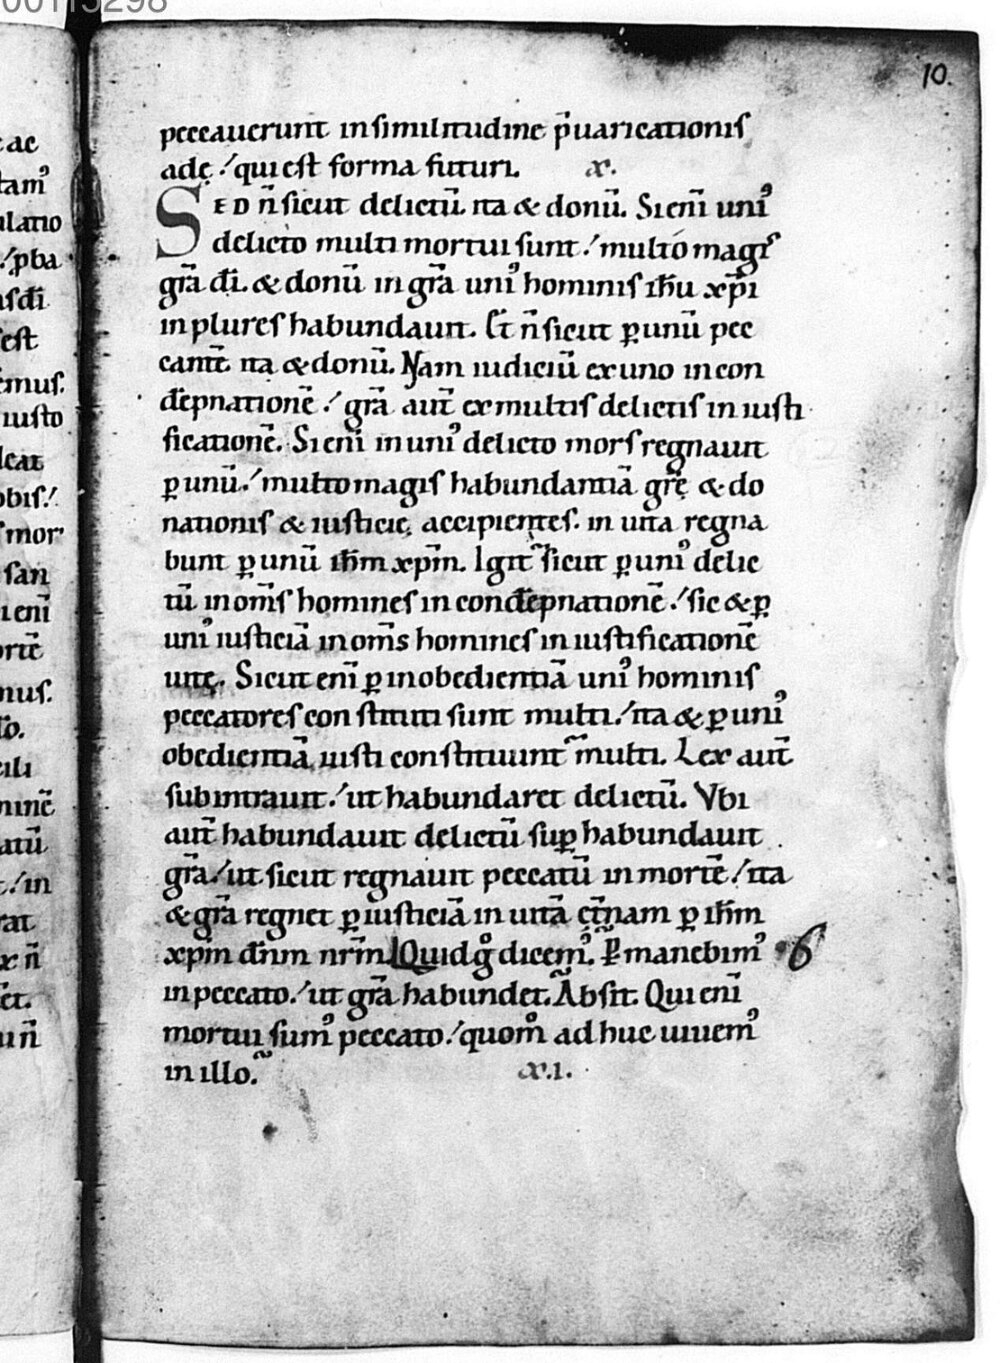 00115298
10.
peccauerunt in similitudine p̄uaricationis
adę ⹎ qui est forma futuri. x.
SED n̄ sicut delictū. ita & donū. Si eni̅ uni᾽
delicto multi mortui sunt ⹎ multo magis
gr̄a dī. & donū in gr̄a uni᾽ hominis ih̄u xp̄i
in plures habundauit. Et n̄ sicut ꝑ unū pec
cantē. ita & donū. Nam iudiciū ex uno in con
dēpnationē ⹎ gr̄a aut̄ ex multis delictis in iusti
ficationē. Si eni̅ in uni᾽ delicto mors regnauit
ꝑ unū ⹎ multo magis habundantiā gr̄ę & do
nationis & iusticię accipientes. in uita regna
bunt ꝑ unū ih̄m xp̄m. Igit᷑ sicut ꝑ uni᾽ delic
tū in om̄s homines in condēpnationē ⹎ sic & ꝑ
uni᾽ iusticiā in om̄s homines in iustificationē
uitę. Sicut eni̅ ꝑ inobedientiā uni᾽ hominis
peccatores constituti sunt multi ⹎ ita & ꝑ uni᾽
obedientiā iusti constituunt᷑ multi. Lex aut̄
subintrauit ⹎ ut habundaret delictū. Vbi
aut̄ habundauit delictū suꝑ habundauit
gr̄a ⹎ ut sicut regnauit peccatū in mortē ⹎ ita
& gr̄a regnet ꝑ iusticiā in uitā ęt̄nam ꝑ ih̄m
xp̄m dn̄m nr̄m. Quid gͦ dicem᾽. Ꝑmanebim᾽ 6
in peccato ⹎ ut gr̄a habundet. Absit. Qui eni̅
mortui sum᾽ peccato ⹎ quom̊ ad huc uiuem᾽
in illo. x.i.